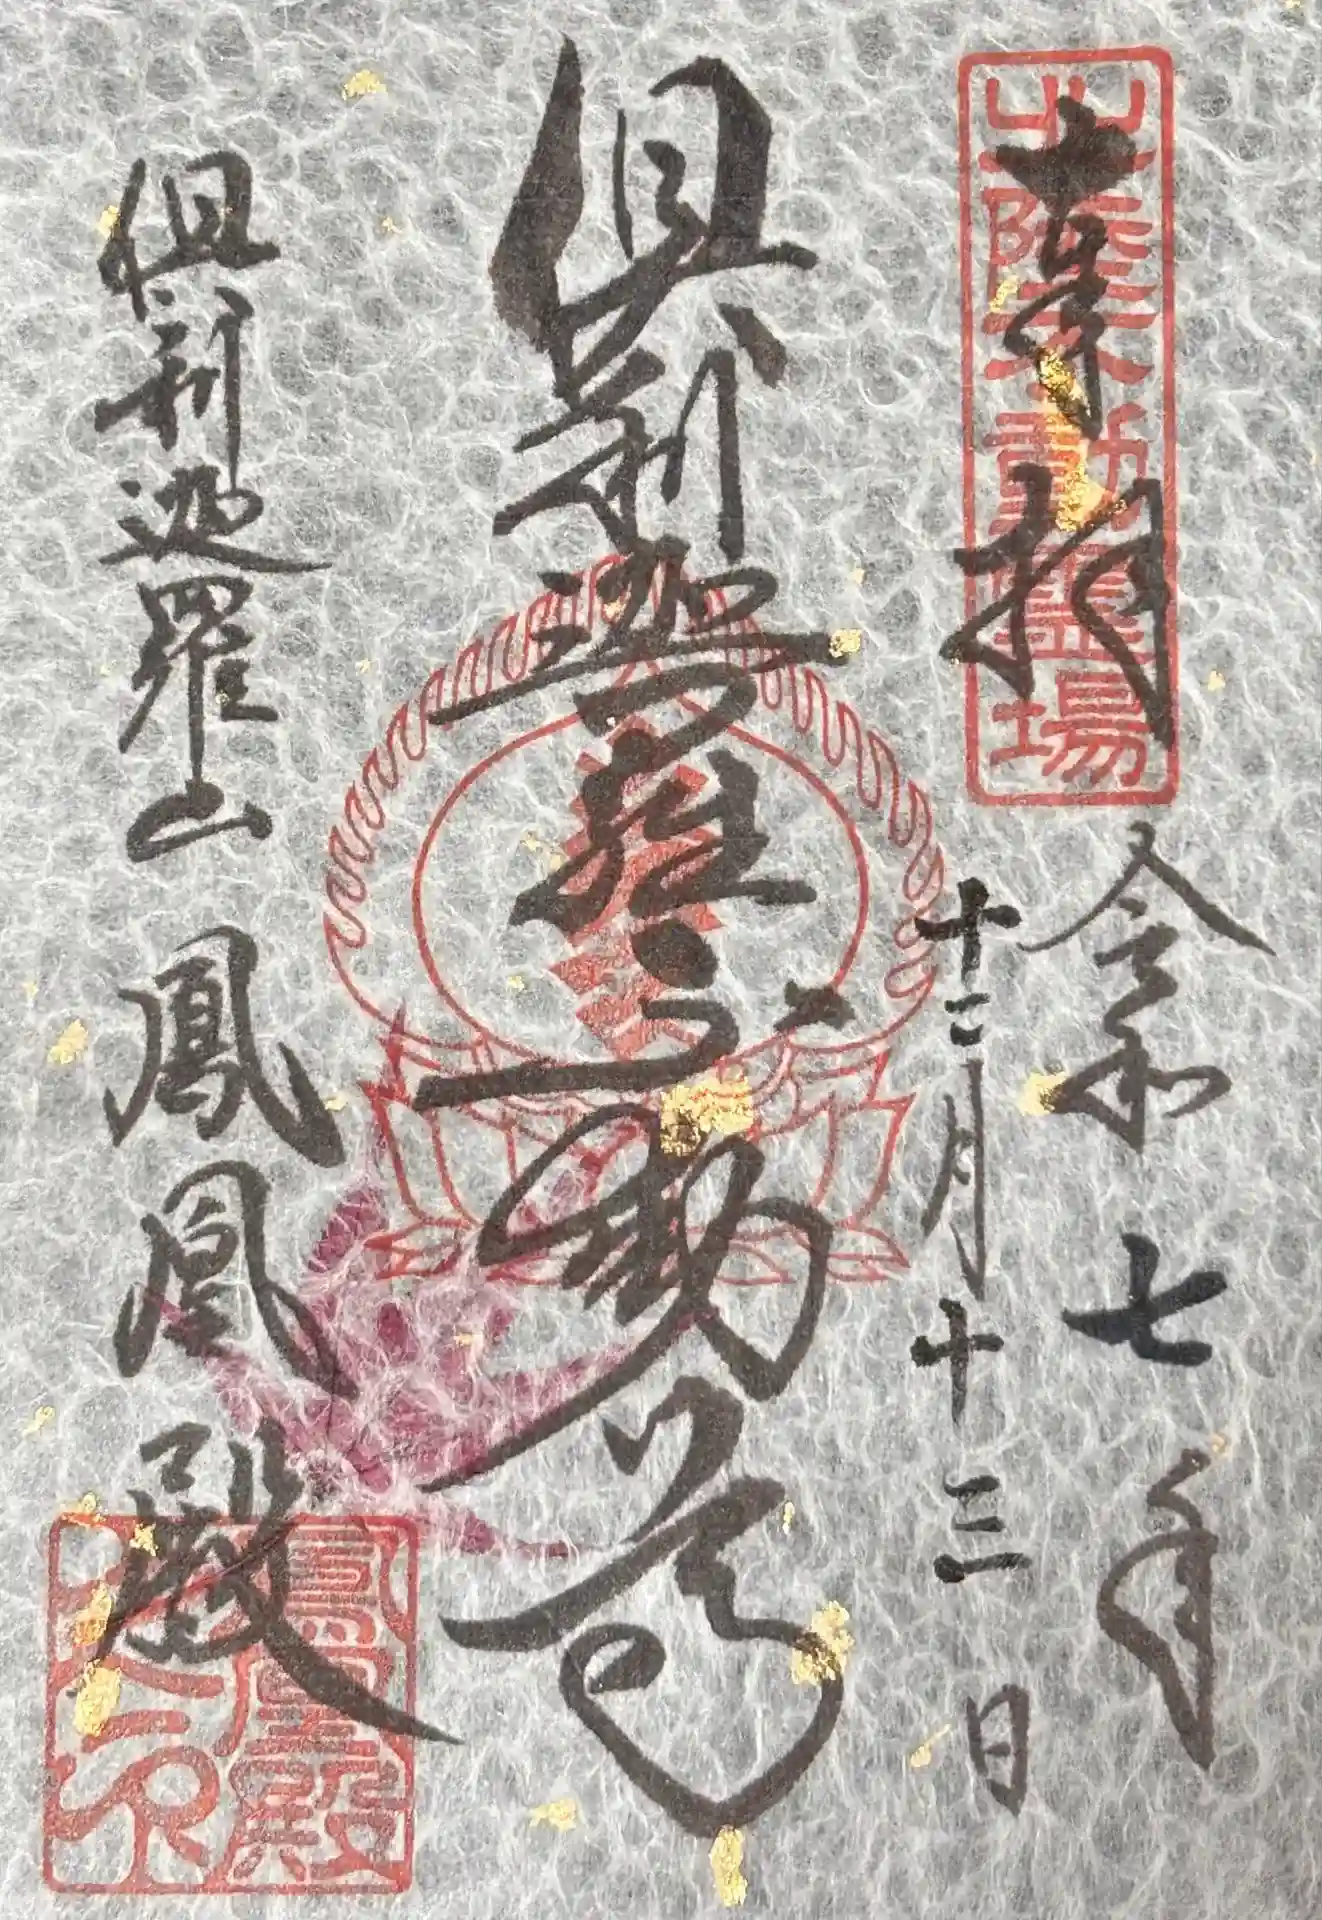 奉拝
北陸不動霊場
令和七年
十二月十三日
倶利迦羅不動尊
倶利迦羅山
鳳凰殿
鳳凰殿之印